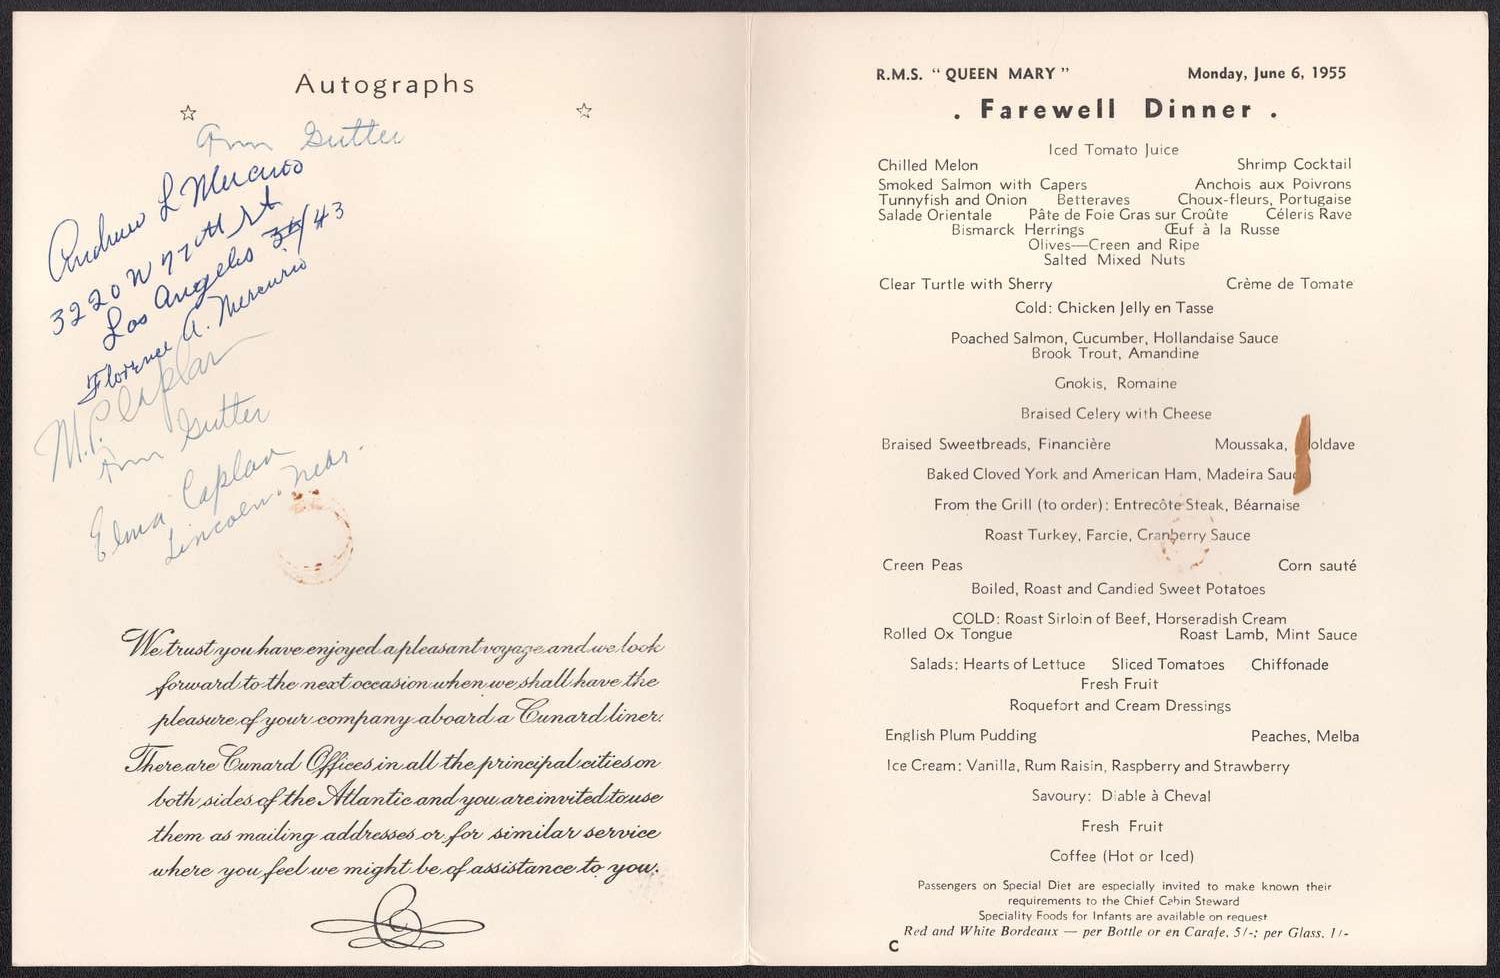 Autographs
Ann Gutter
Andrew L Mercurio
3220 W 77th St
Los Angeles 43
Florence A. Mercurio
M.P. Caplan
Ann Gutter
Elma Caplan
Lincoln, Nebr.
We trust you have enjoyed a pleasant voyage and we look
forward to the next occasion when we shall have the
pleasure of your company aboard a Cunard liner.
There are Cunard Offices in all the principal cities on
both sides of the Atlantic and you are invited to use
them as mailing addresses or for similar service
where you feel we might be of assistance to you.
R.M.S. "QUEEN MARY" Monday, June 6, 1955
. Farewell Dinner .
Iced Tomato Juice
Chilled Melon Shrimp Cocktail
Smoked Salmon with Capers Anchois aux Poivrons
Tunnyfish and Onion Betteraves Choux-fleurs, Portugaise
Salade Orientale Pâte de Foie Gras sur Croûte Céleris Rave
Bismarck Herrings Œuf à la Russe
Olives—Creen and Ripe
Salted Mixed Nuts
Clear Turtle with Sherry Crème de Tomate
Cold: Chicken Jelly en Tasse
Poached Salmon, Cucumber, Hollandaise Sauce
Brook Trout, Amandine
Gnokis, Romaine
Braised Celery with Cheese
Braised Sweetbreads, Financière Moussaka, oldave
Baked Cloved York and American Ham, Madeira Sauc
From the Grill (to order): Entrecôte Steak, Béarnaise
Roast Turkey, Farcie, Cranberry Sauce
Creen Peas Corn sauté
Boiled, Roast and Candied Sweet Potatoes
COLD: Roast Sirloin of Beef, Horseradish Cream
Rolled Ox Tongue Roast Lamb, Mint Sauce
Salads: Hearts of Lettuce Sliced Tomatoes Chiffonade
Fresh Fruit
Roquefort and Cream Dressings
English Plum Pudding Peaches, Melba
Ice Cream: Vanilla, Rum Raisin, Raspberry and Strawberry
Savoury: Diable à Cheval
Fresh Fruit
Coffee (Hot or Iced)
Passengers on Special Diet are especially invited to make known their
requirements to the Chief Cabin Steward
Speciality Foods for Infants are available on request
Red and White Bordeaux — per Bottle or en Carafe, 5/-; per Glass, 1/-
C